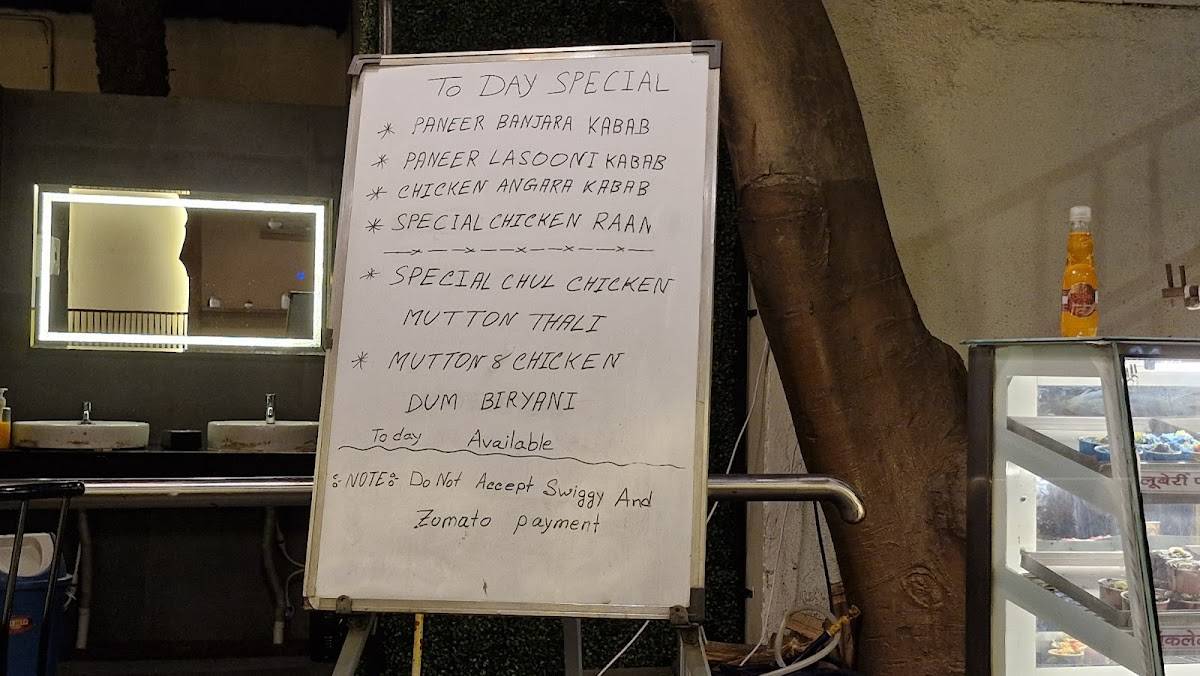 TO DAY SPECIAL
* PANEER BANJARA KABAB
* PANEER LASOONI KABAB
* CHICKEN ANGARA KABAB
* SPECIAL CHICKEN RAAN
* SPECIAL CHUL CHICKEN
MUTTON THALI
* MUTTON & CHICKEN
DUM BIRYANI
Today Available
NOTE Do Not Accept Swiggy And
Zomato payment